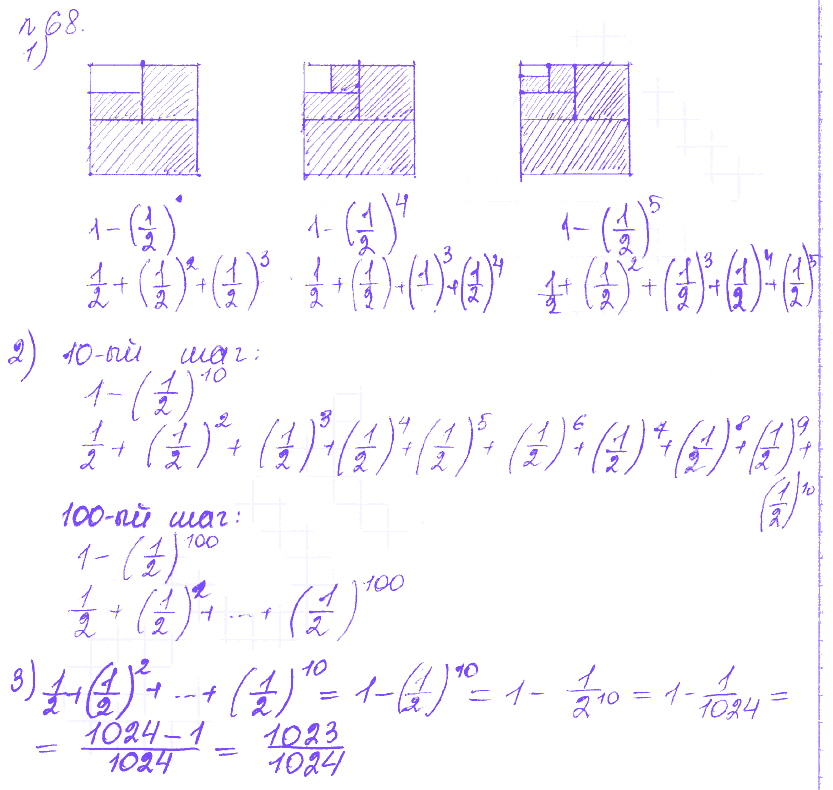 №68.
1)
1-(1/2)^• 1-(1/2)^4 1-(1/2)^5
1/2+(1/2)^2+(1/2)^3 1/2+(1/2)+(1)^3+(1/2)^4 1/2+(1/2)^2+(1/2)^3+(1/2)^4+(1/2)^5
2) 10-ый шаг:
1-(1/2)^10
1/2+(1/2)^2+(1/2)^3+(1/2)^4+(1/2)^5+(1/2)^6+(1/2)^7+(1/2)^8+(1/2)^9+
(1/2)^10
100-ый шаг:
1-(1/2)^100
1/2+(1/2)^2+...+(1/2)^100
3) 1/2+(1/2)^2+...+(1/2)^10=1-(1/2)^10=1-1/2^10=1-1/1024=
=(1024-1)/1024=1023/1024